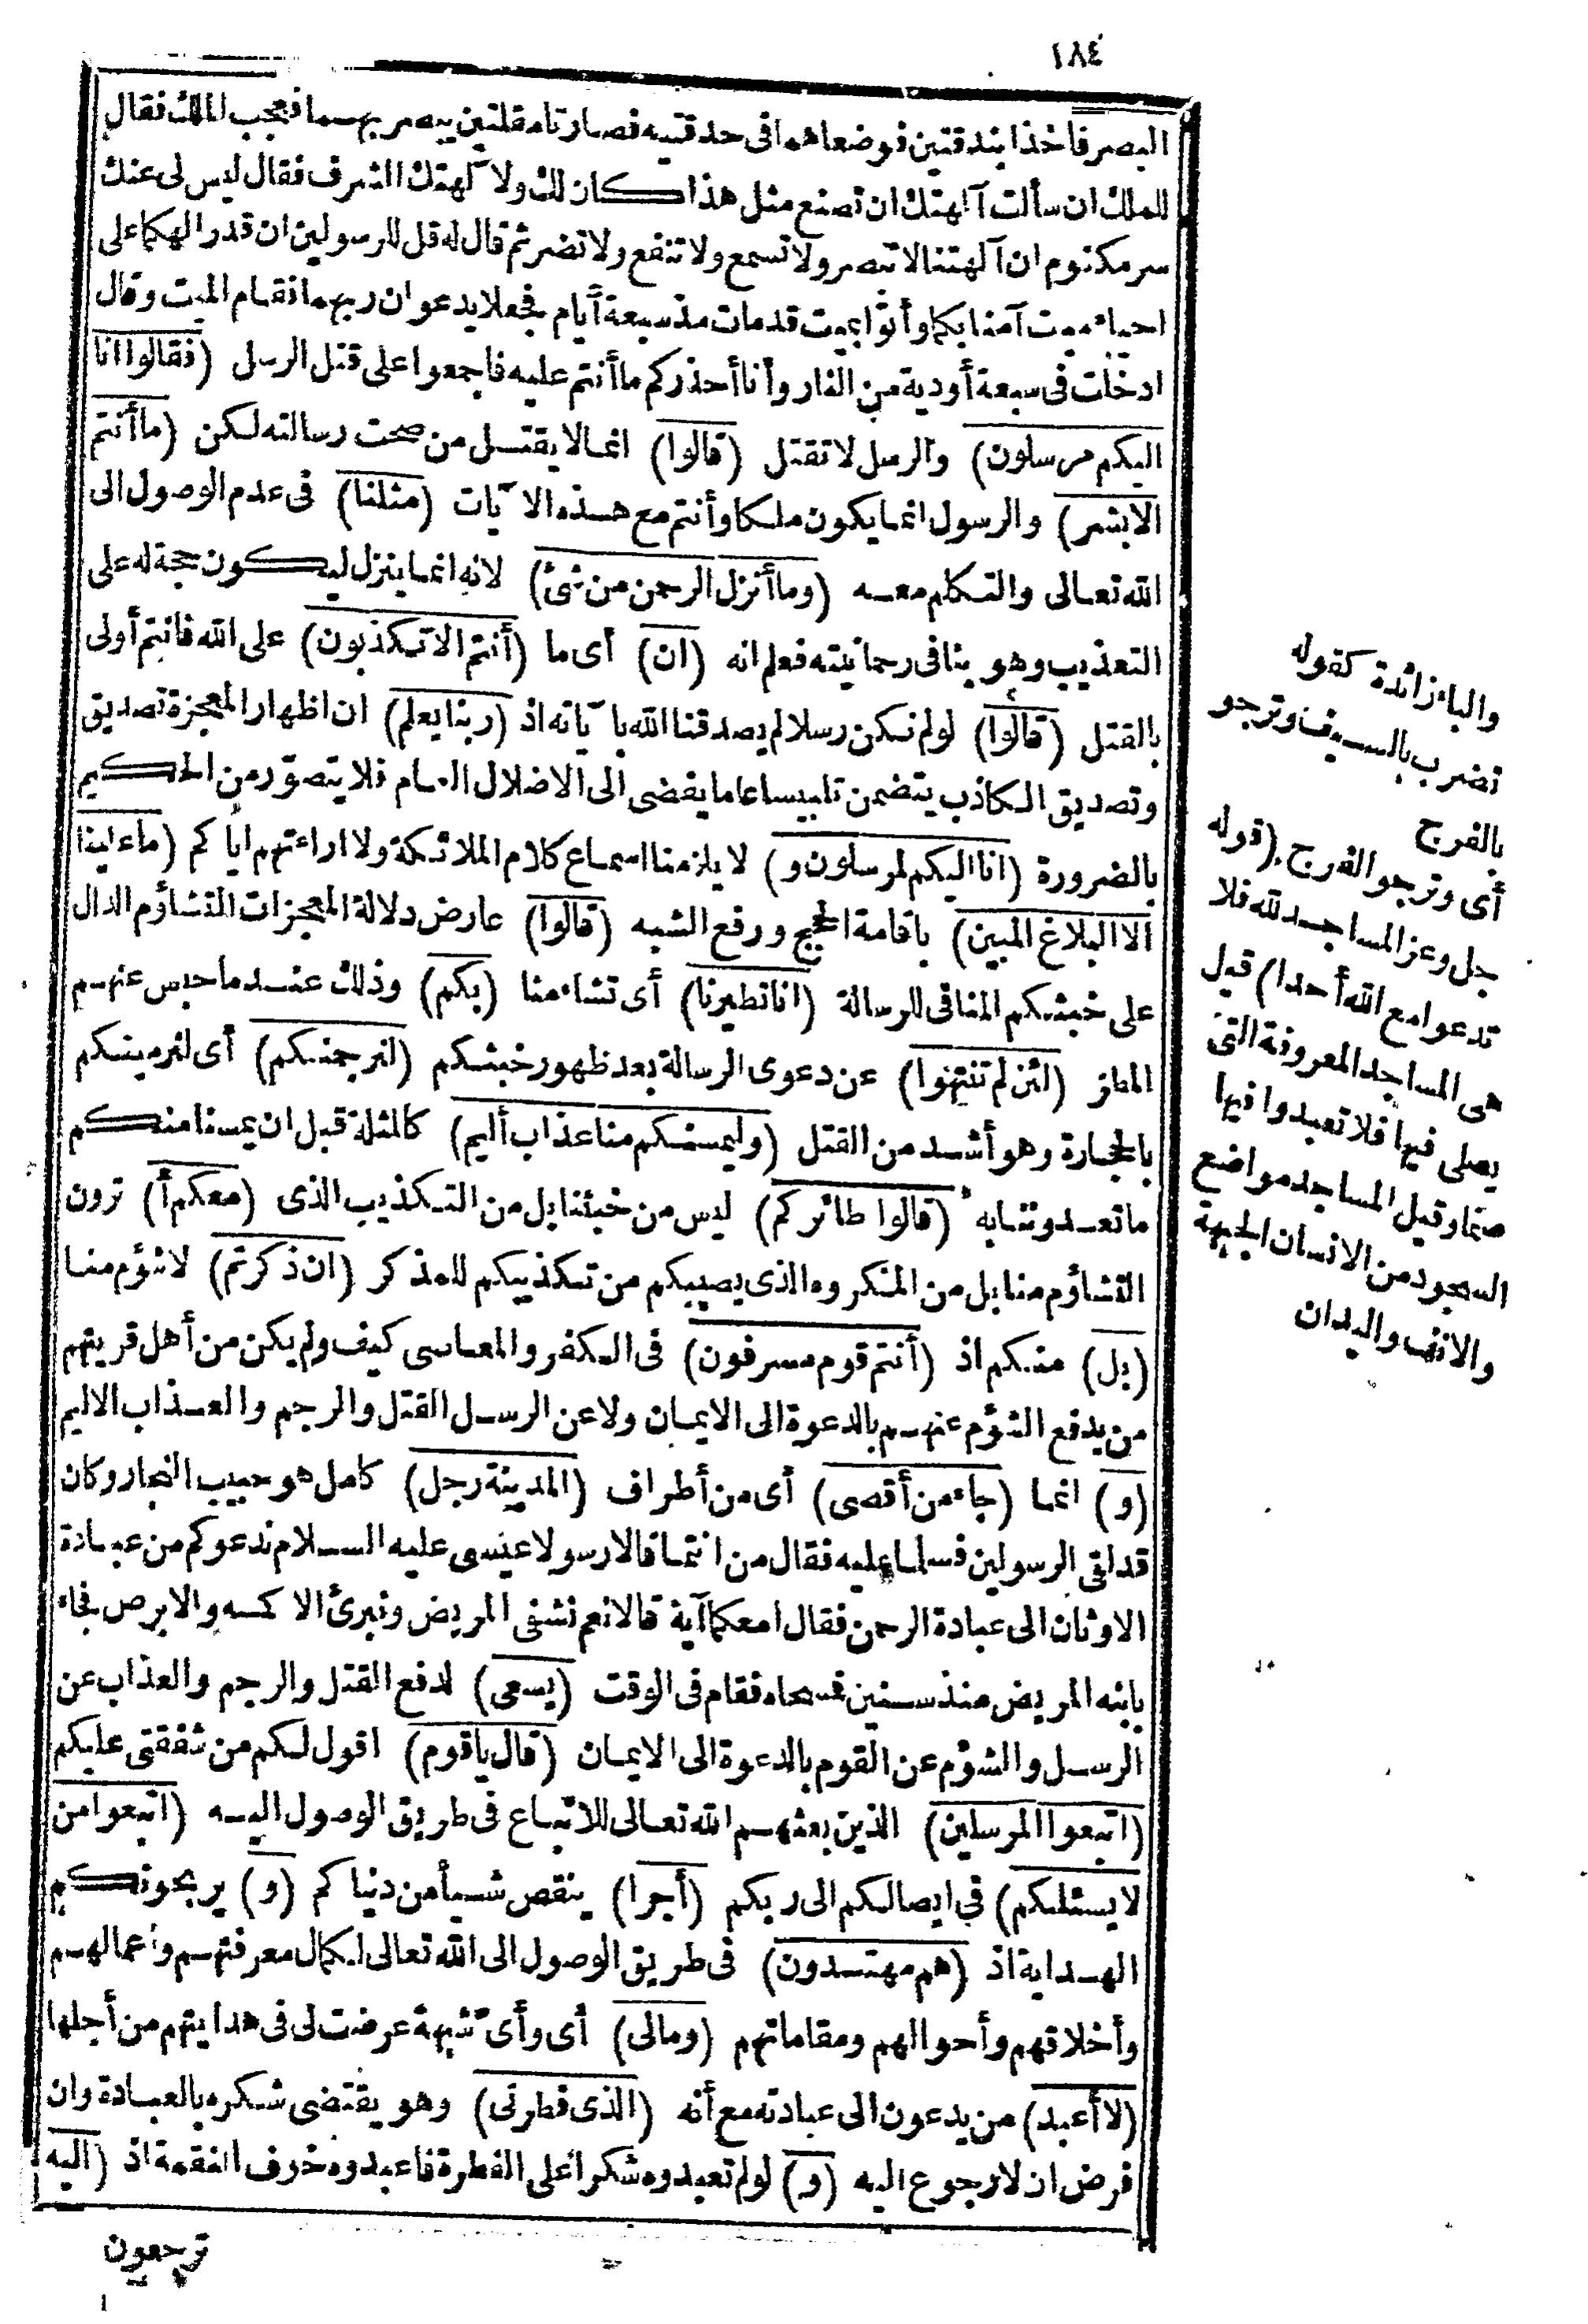 ١٨٤
البصر فاخذا بندقتين فوضعاهما فى حدقتيه فصارتا مقلتين يبصر بهما فعجب الملك فقال
للملك ان سألت آلهتك ان تصنع مثل هذا كان لك ولآلهتك الشرف فقال ليس لى عنك
سر مكتوم ان آلهتنا لا تبصر ولا تسمع ولا تنفع ولا تضر ثم قال له قل للرسولين ان قدر الهكما على
احياء ميت آمنا بكما وأتوا بميت قد مات مذ سبعة أيام فجعلا يدعوان ربهما فقام الميت وقال
ادخلت فى سبعة أودية من النار وأنا أحذركم ما أنتم عليه فاجمعوا على قتل الرسل (فقالوا انا
اليكم مرسلون) والرسل لا تقتل (قالوا) انما لا يقتل من صحت رسالته لكن (ما أنتم
الا بشر) والرسول انما يكون ملكا وأنتم مع هذه الآيات (مثلنا) فى عدم الوصول الى
الله تعالى والتكلم معه (وما أنزل الرحمن من شئ) لانه انما ينزل ليكون حجة له على
التعذيب وهو ينافى رحمانيته فعلم انه (ان) أى ما (أنتم الا تكذبون) على الله فانتم أولى
بالقتل (قالوا) لو لم نكن رسلا لم يصدقنا الله بآياته اذ (ربنا يعلم) ان اظهار المعجزة تصديق
وتصديق الكاذب يتضمن تلبيسا عاما يفضى الى الاضلال العام فلا يتصور من الحكيم
بالضرورة (انا اليكم لمرسلون و) لا يلزمنا اسماع كلام الملائكة ولا اراءتهم اياكم (ما علينا
الا البلاغ المبين) باقامة الحجج ورفع الشبه (قالوا) عارض دلالة المعجزات التشاؤم الدال
على خبثكم المنافى للرسالة (انا تطيرنا) أى تشاءمنا (بكم) وذلك عند ما حبس عنهم
المطر (لئن لم تنتهوا) عن دعوى الرسالة بعد ظهور خبثكم (لنرجمنكم) أى لنرمينكم
بالحجارة وهو أشد من القتل (وليمسنكم منا عذاب أليم) كالمثلة قبل ان يمسنا منكم
ما تعدوننا به (قالوا طائركم) ليس من خبثنا بل من التكذيب الذى (معكم أ) ترون
التشاؤم منا بل من المنكر وه الذى يصيبكم من تكذيبكم للمذكر (ان ذكرتم) لا شؤم منا
(بل) منكم اذ (أنتم قوم مسرفون) فى الكفر والمعاصى كيف ولم يكن من أهل قريتهم
من يدفع الشؤم عنهم بالدعوة الى الايمان ولا عن الرسل القتل والرجم والعذاب الاليم
(و) انما (جاء من أقصى) أى من أطراف (المدينة رجل) كامل هو حبيب النجار وكان
قد لقى الرسولين فسلما عليه فقال من انتما قالا رسولا عيسى عليه السلام ندعوكم من عبادة
الاوثان الى عبادة الرحمن فقال امعكما آية قالا نعم نشفى المريض ونبرئ الاكمه والابرص فجاء
بابنه المريض منذ سنين فمسحاه فقام فى الوقت (يسعى) لدفع القتل والرجم والعذاب عن
الرسل والشؤم عن القوم بالدعوة الى الايمان (قال يا قوم) اقول لكم من شفقتى عليكم
(اتبعوا المرسلين) الذين بعثهم الله تعالى للاتباع فى طريق الوصول اليه (اتبعوا من
لا يسئلكم) فى ايصالكم الى ربكم (أجرا) ينقص شيأ من دنياكم (و) يرجونكم
الهداية اذ (هم مهتدون) فى طريق الوصول الى الله تعالى لكمال معرفتهم وأعمالهم
وأخلاقهم وأحوالهم ومقاماتهم (ومالى) أى وأى شبهة عرضت لى فى هدايتهم من أجلها
(لا أعبد) من يدعون الى عبادته مع أنه (الذى فطرنى) وهو يقتضى شكره بالعبادة وان
فرض ان لا رجوع اليه (و) لو لم تعبدوه شكرا على الفطرة فاعبدوه خوف النقمة اذ (اليه
ترجعون
والباء زائدة كقوله
نضرب بالسيف ونرجو
بالفرج
أى ونرجو الفرج (قوله
جل وعز المساجد لله فلا
تدعوا مع الله أحدا) قيل
هى المساجد المعروفة التى
يصلى فيها فلا تعبدوا فيها
صنما وقيل المساجد مواضع
السجود من الانسان الجبهة
والانف واليدان